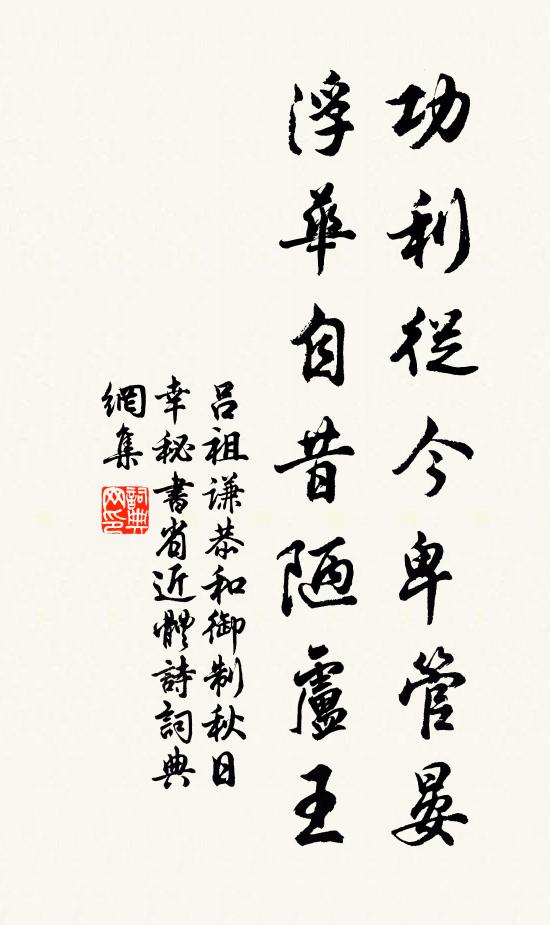 功利從今卑管晏
浮華自昔陋盧王
呂祖謙恭和御制秋日
幸秘書省近體詩詞典
網集
詞典
网印